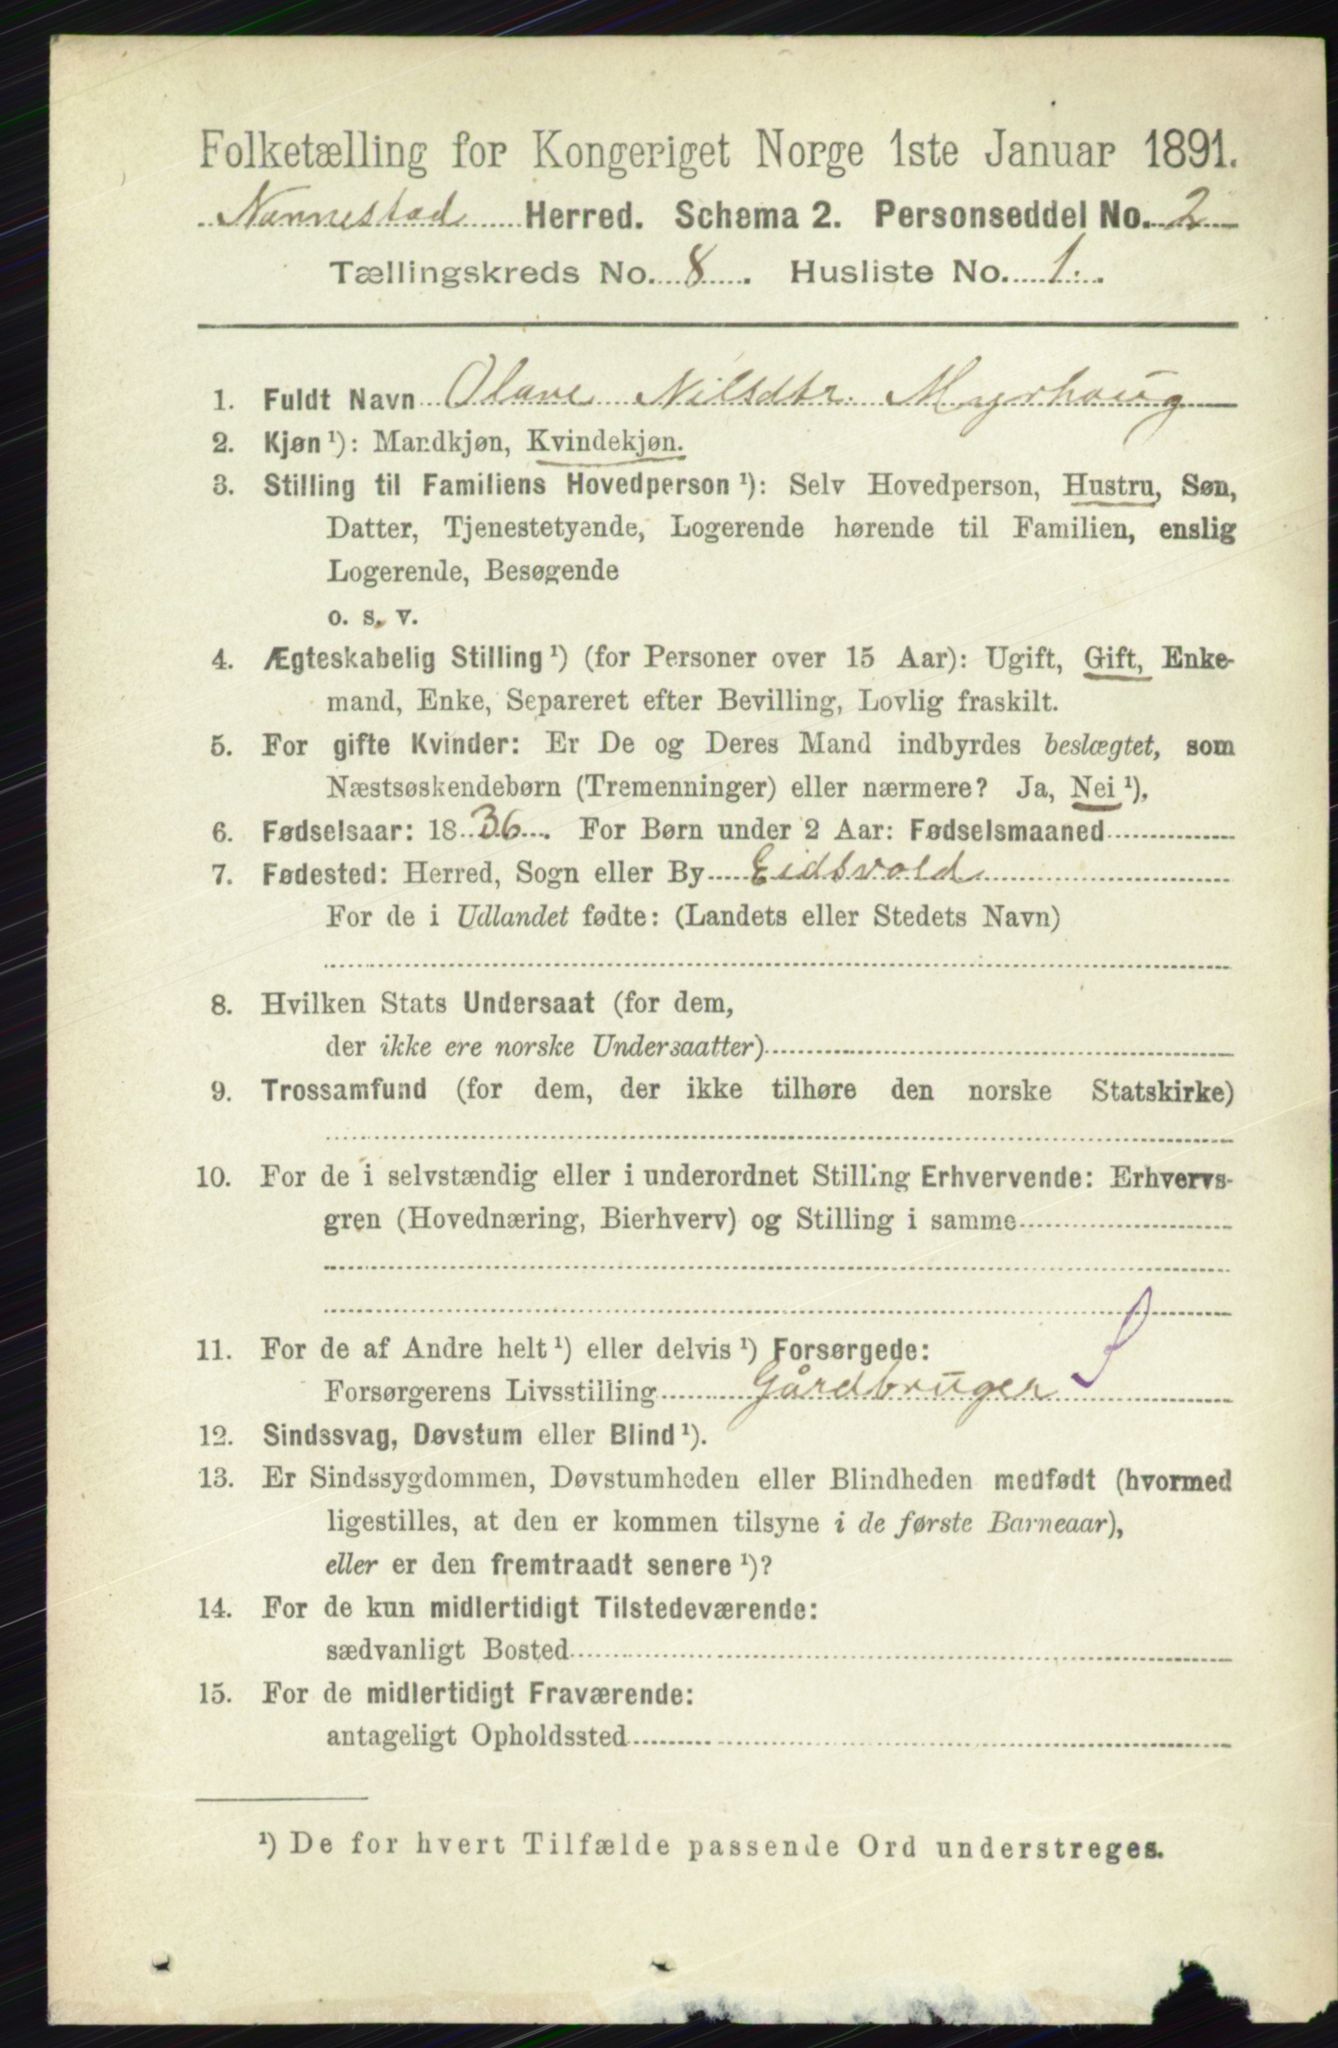 Folketælling for Kongeriget Norge 1ste Januar 1891.
Nannestad Herred. Schema 2. Personseddel No. 2
Tællingskreds No. 8. Husliste No. 1.
1. Fuldt Navn Olave Nilsdtr. Myrhaug
2. Kjøn ¹): Mandkjøn, Kvindekjøn.
3. Stilling til Familiens Hovedperson ¹): Selv Hovedperson, Hustru, Søn,
Datter, Tjenestetyende, Logerende hørende til Familien, enslig
Logerende, Besøgende
o. s. v.
4. Ægteskabelig Stilling ¹) (for Personer over 15 Aar): Ugift, Gift, Enke-
mand, Enke, Separeret efter Bevilling, Lovlig fraskilt.
5. For gifte Kvinder: Er De og Deres Mand indbyrdes beslægtet, som
Næstsøskendebørn (Tremenninger) eller nærmere? Ja, Nei ¹).
6. Fødselsaar: 1836. For Børn under 2 Aar: Fødselsmaaned
7. Fødested: Herred, Sogn eller By Eidsvold
For de i Udlandet fødte: (Landets eller Stedets Navn)
8. Hvilken Stats Undersaat (for dem,
der ikke ere norske Undersaatter)
9. Trossamfund (for dem, der ikke tilhøre den norske Statskirke)
10. For de i selvstændig eller i underordnet Stilling Erhvervende: Erhvervs-
gren (Hovednæring, Bierhverv) og Stilling i samme
11. For de af Andre helt ¹) eller delvis ¹) Forsørgede:
Forsørgerens Livsstilling Gårdbruger
12. Sindssvag, Døvstum eller Blind ¹).
13. Er Sindssygdommen, Døvstumheden eller Blindheden medfødt (hvormed
ligestilles, at den er kommen tilsyne i de første Barneaar),
eller er den fremtraadt senere ¹)?
14. For de kun midlertidigt Tilstedeværende:
sædvanligt Bosted
15. For de midlertidigt Fraværende:
antageligt Opholdssted
¹) De for hvert Tilfælde passende Ord understreges.